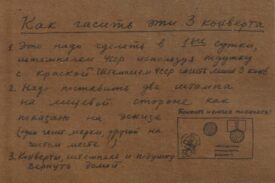 Как гасить эти 3 конверта
1. Это надо сделать в 1ые сутки,
штемпелем СССР используя подушку
с краской. Штемпелем СССР гасить лишь 3 конв.
2. Надо поставить два штампа
на лицевой стороне как
показано на эскизе
(один гасит марки, другой на
чистом месте)
3. Конверты, штемпель и подушку
вернуть домой.